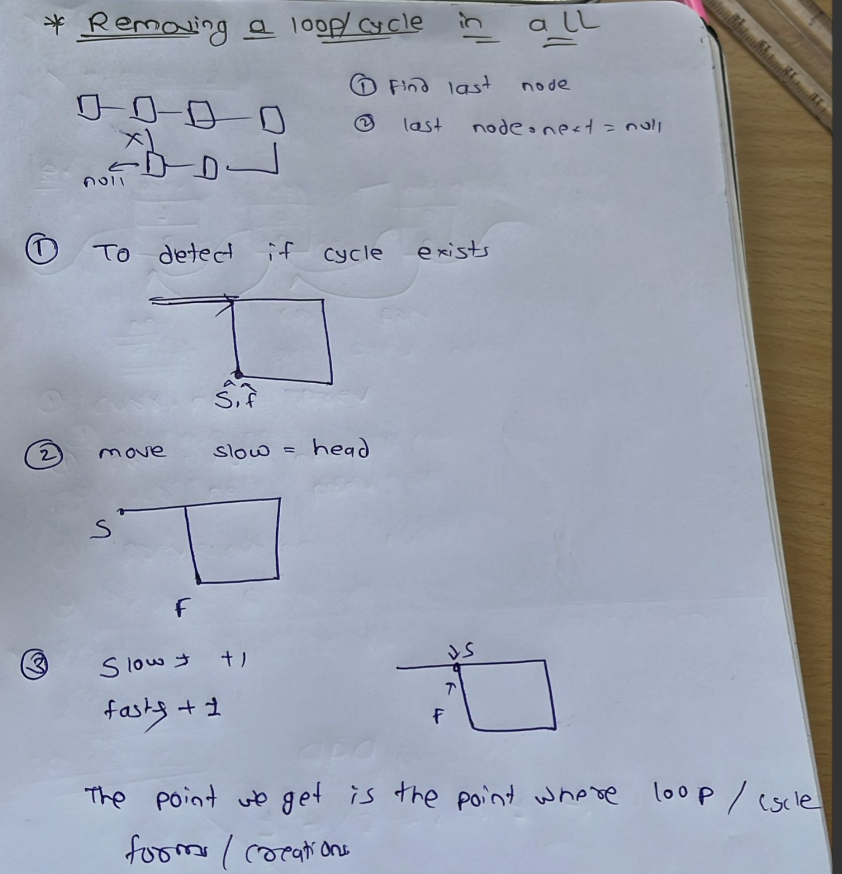 * Removing a loop/cycle in a LL
① Find last node
② last node.next = null
X
null
① To detect if cycle exists
S, f
② move slow = head
S
F
③ Slow → +1
S
fast → +1
F
The point we get is the point where loop / cycle
forms / creations